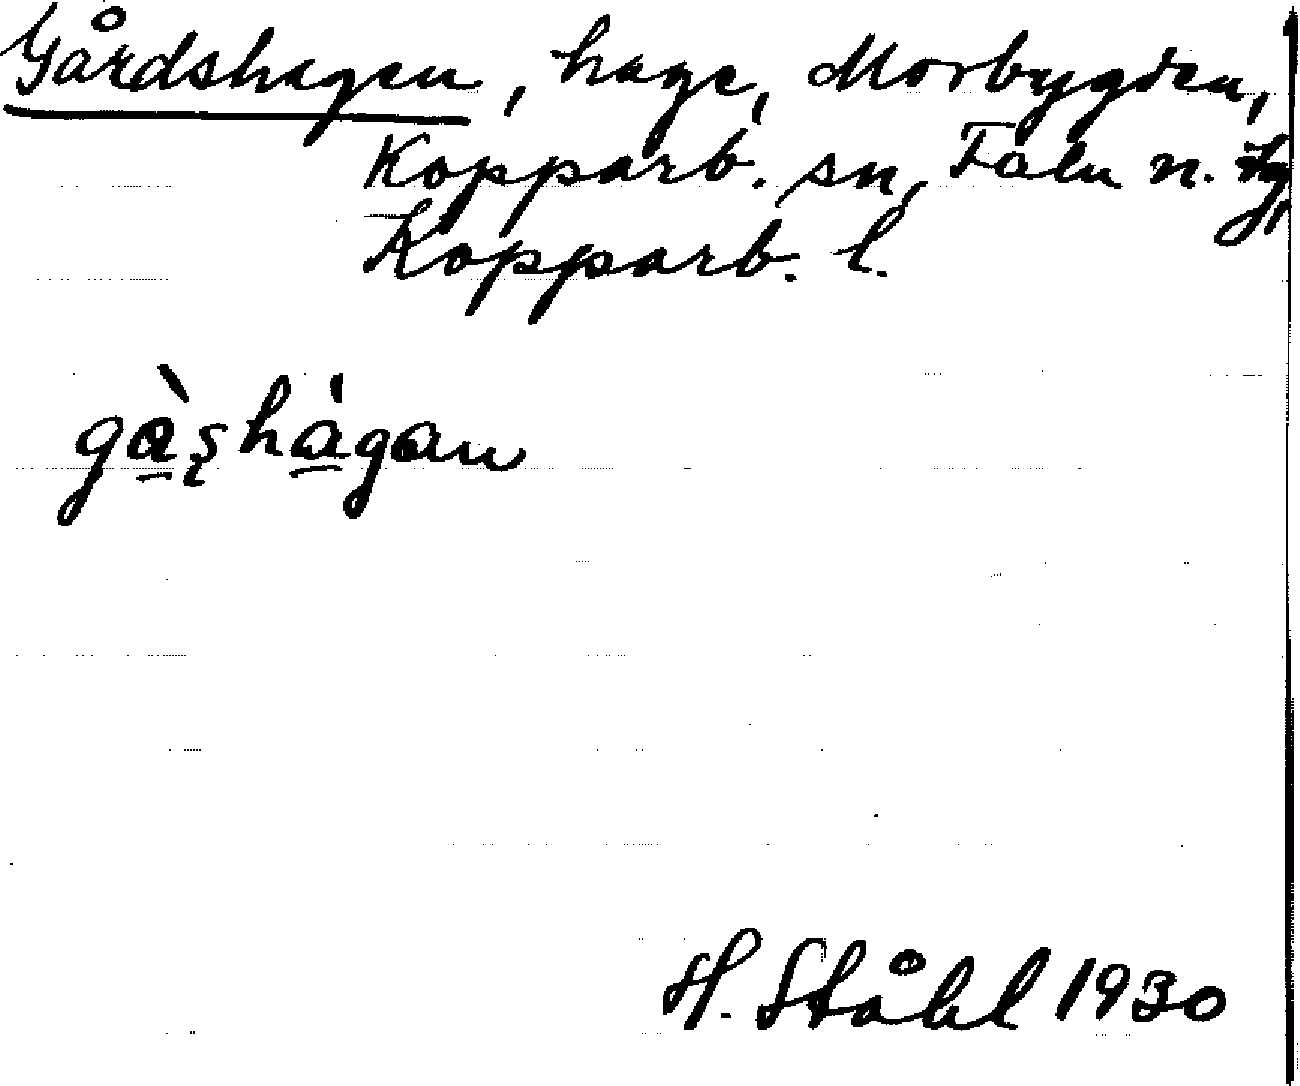 Gårdshagen, hage, Morbygden,
Kopparb. sn, Falu n. tg,
Kopparb. l.
gà̱ʂhá̱gan
H. Ståhl 1930